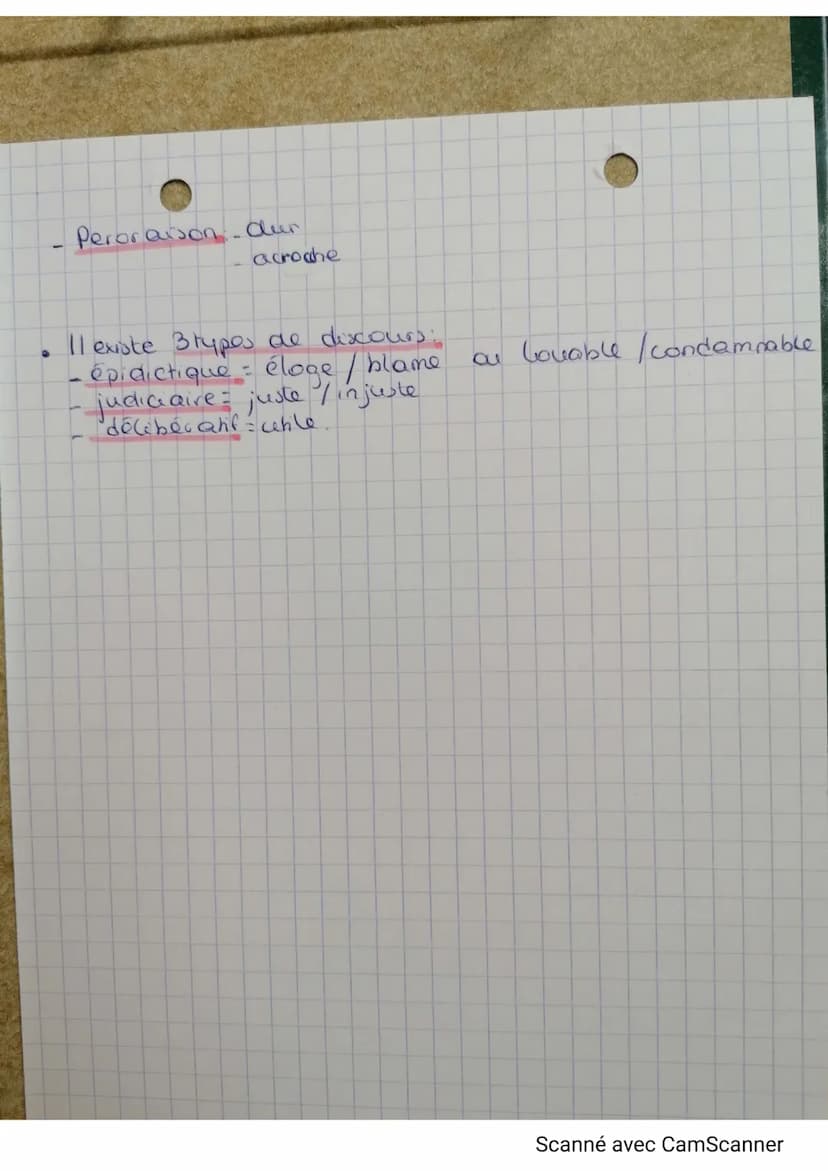 - Peroraison : - dur
- acroche
• Il existe 3 types de discours :
- épidictique = éloge / blame ou louable / condamnable
- judiciaire = juste / injuste
- délibératif = utile.
Scanné avec CamScanner